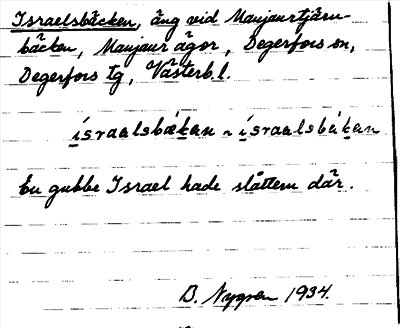 Israelsbäcken, äng vid Manjaurtjärn-
bäcken, Manjaur ägor, Degerfors sn,
Degerfors tg, Västerb. l.
israalsbäkan ~ israalsbäkan
En gubbe Israel hade slåttern där.
B. Nygren 1934.